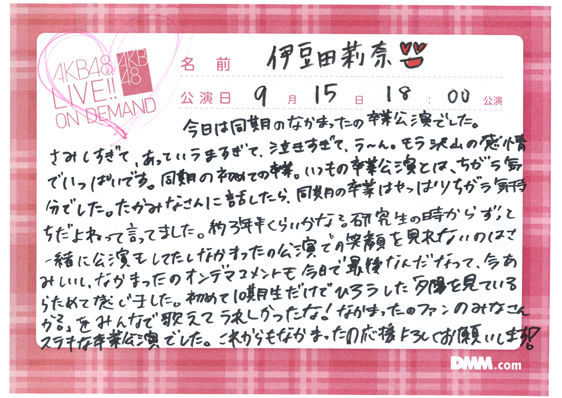 AKB48
LIVE!!
ON DEMAND
AKB
48
名前 伊豆田莉奈
公演日 9月15日 18:00公演
今日は同期のなかまったの卒業公演でした。
さみしすぎて、あっていうますぎて、泣きすぎて、う〜ん。もう沢山の感情
でいっぱいです。同期の初めての卒業。いつもの卒業公演とは、ちがう気
分でした。たかみなさんに話したら、同期の卒業はやっぱりちがう気持
ちだよねって言ってました。約3年半くらいかなぁ研究生の時からずっと
一緒に公演もしてたしなかまったの公演での笑顔を見れないのはさ
みしいし、なかまったのオンデマコメントも今日で最後なんだなって、今あ
らためて感じました。初めて10期生だけでひろうした夕陽を見ている
か?をみんなで歌えてうれしかったな!なかまったのファンのみなさん
ステキな卒業公演でした。これからもなかまったの応援よろしくお願いします!
DMM.com